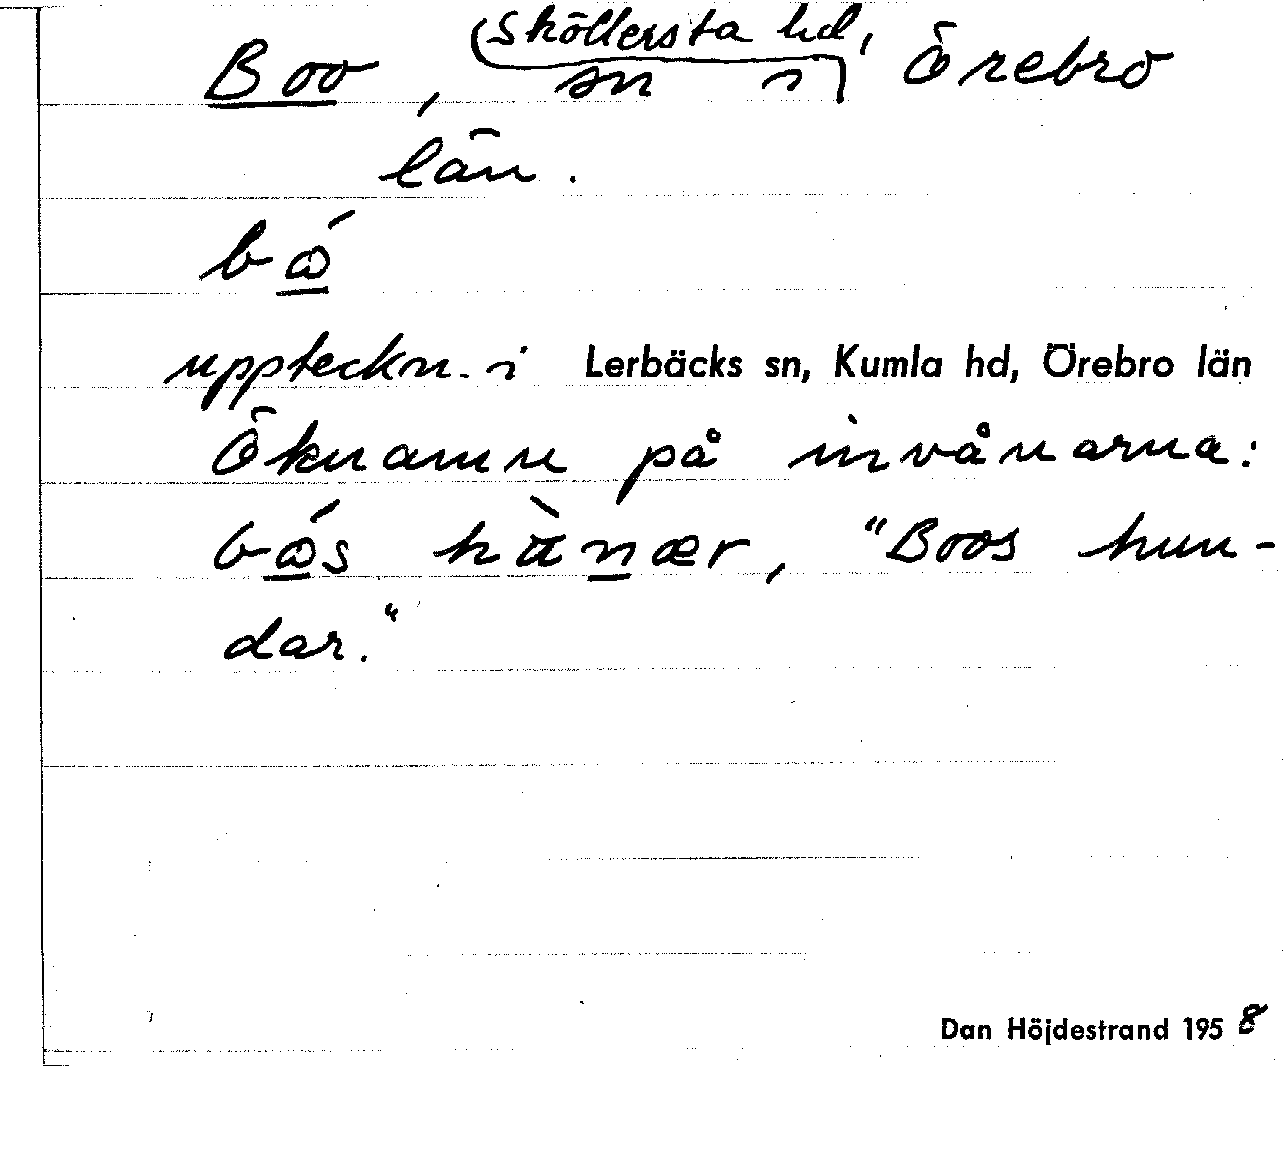 Boo, sn i Sköllersta hd, Örebro
län.
bɷ́
uppteckn. i Lerbäcks sn, Kumla hd, Örebro län
Öknamn på invånarna:
bɷ́s hànær, "Boos hun-
dar."
Dan Höjdestrand 1958